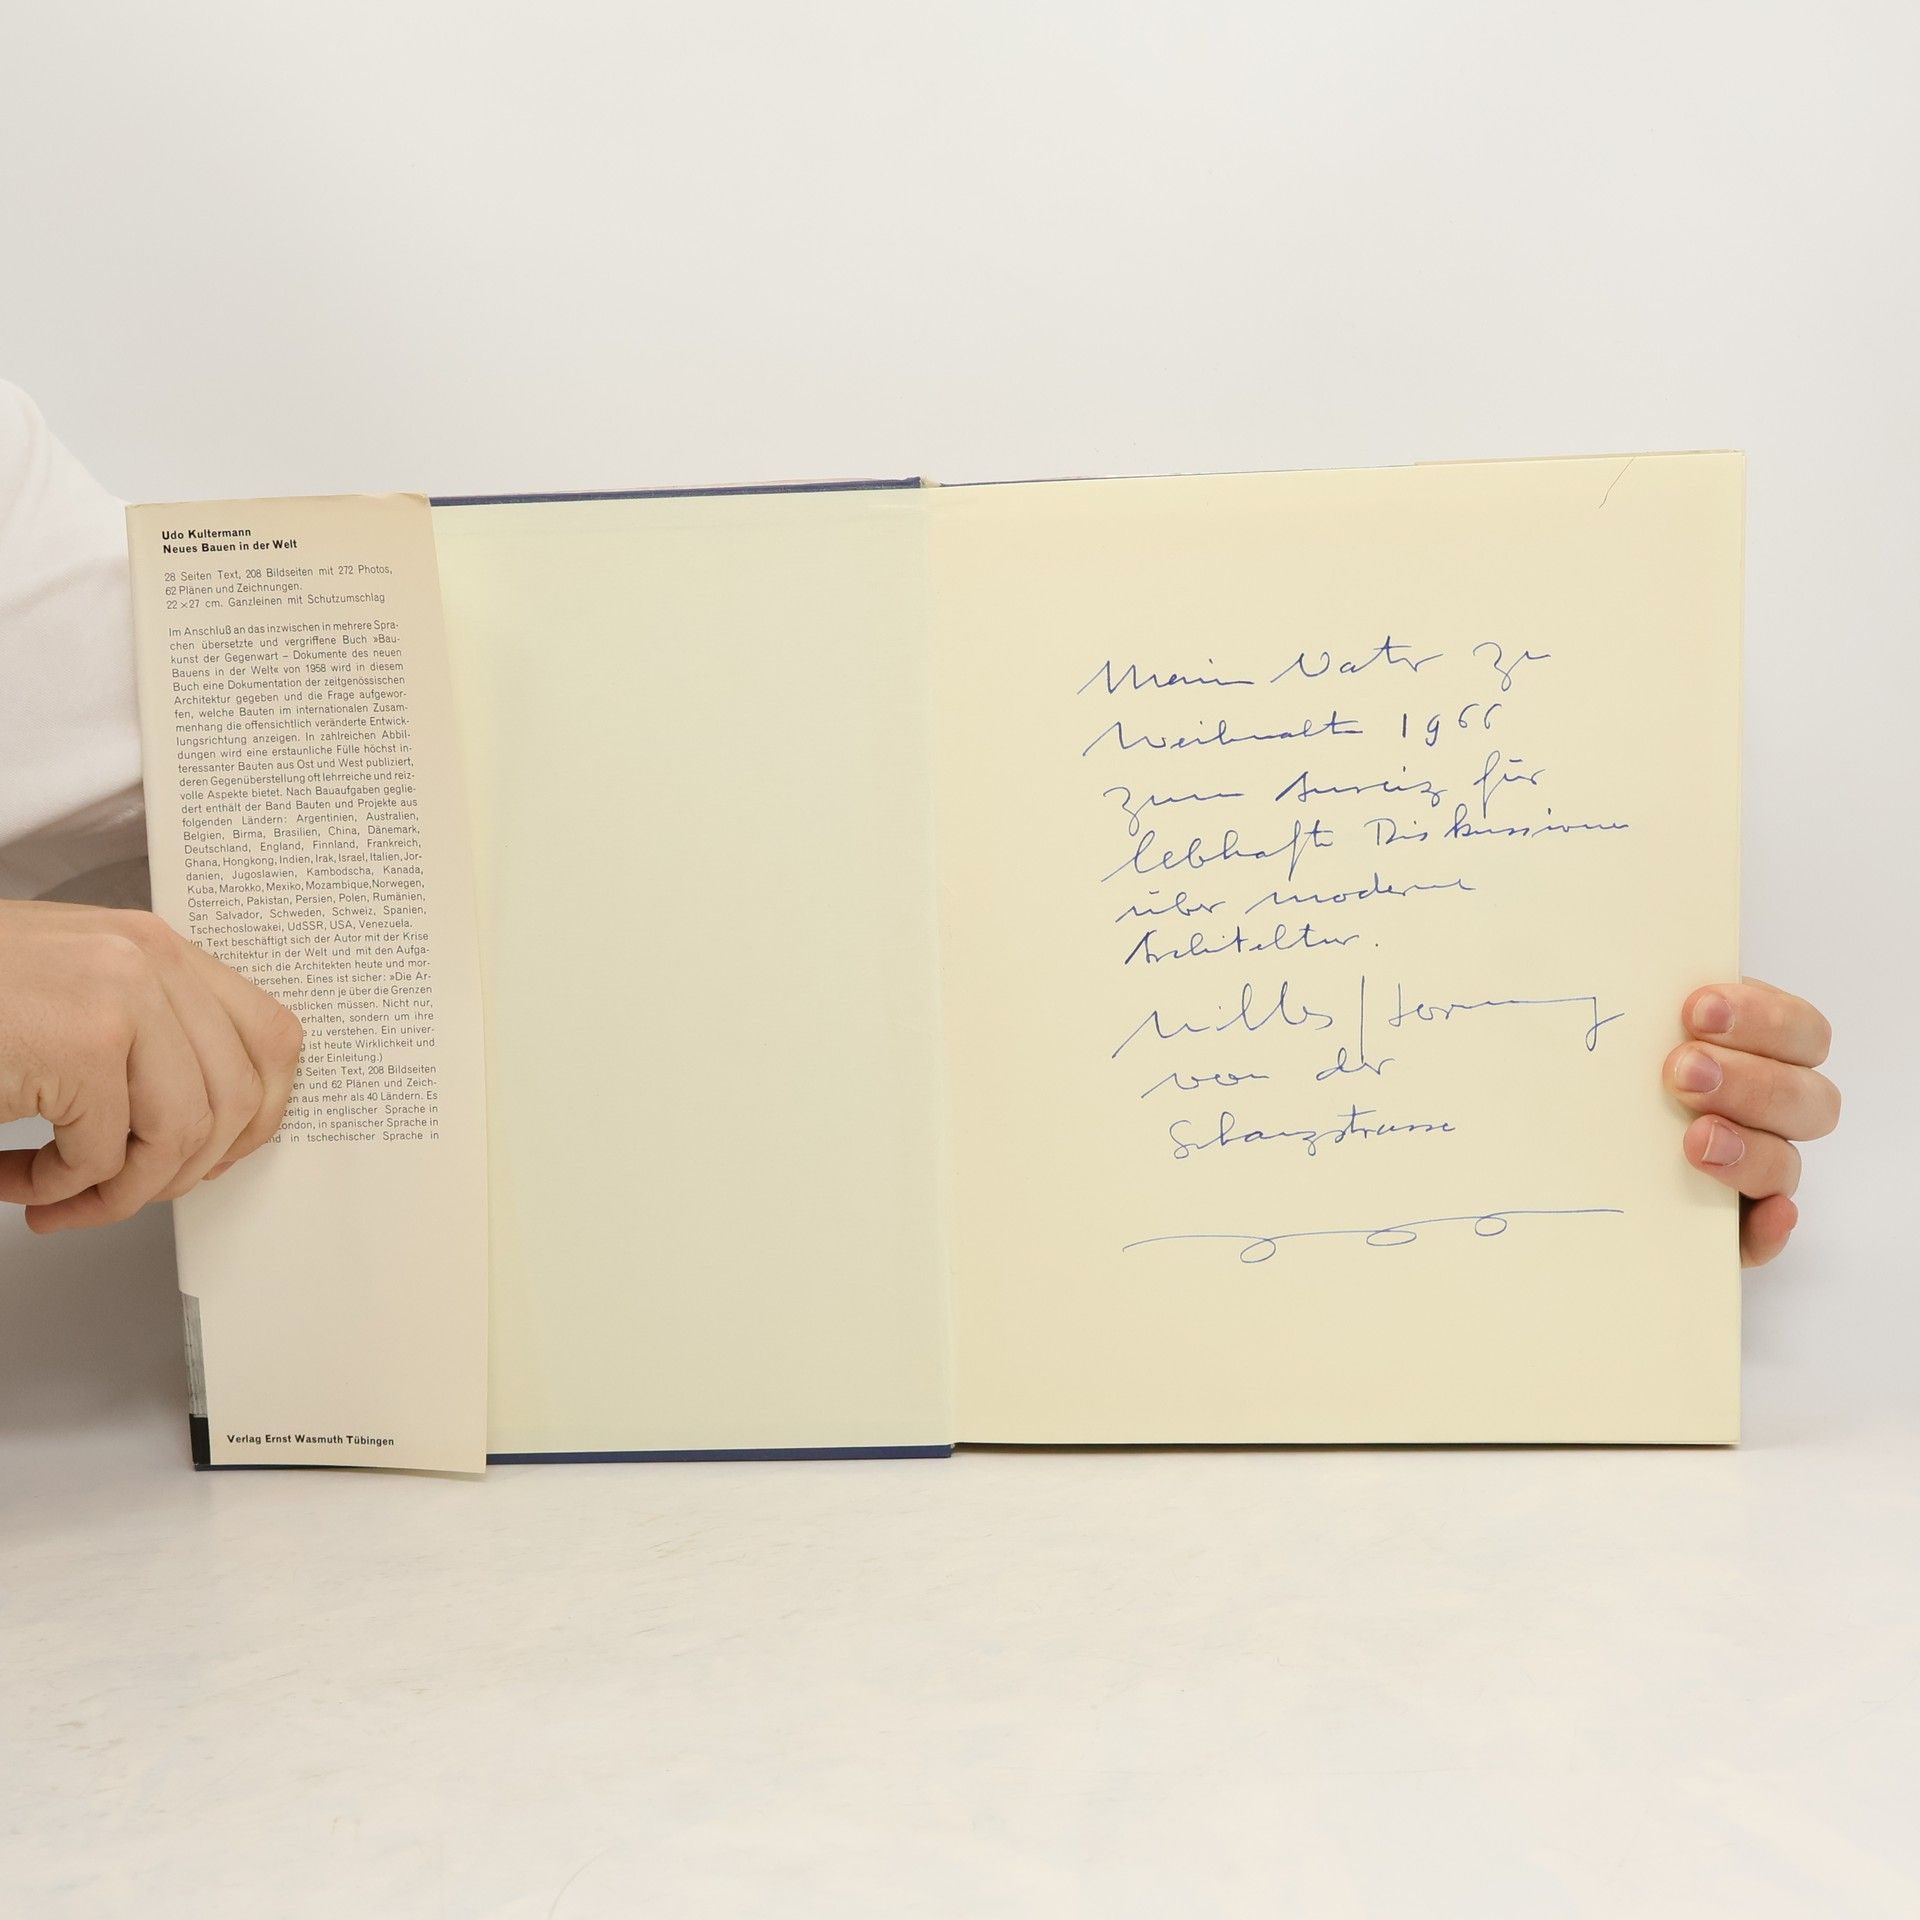 Udo Kultermann
Neues Bauen in der Welt
28 Seiten Text, 208 Bildseiten mit 272 Photos,
62 Plänen und Zeichnungen.
22 × 27 cm. Ganzleinen mit Schutzumschlag
Im Anschluß an das inzwischen in mehrere Spra-
chen übersetzte und vergriffene Buch »Bau-
kunst der Gegenwart – Dokumente des neuen
Bauens in der Welt« von 1958 wird in diesem
Buch eine Dokumentation der zeitgenössischen
Architektur gegeben und die Frage aufgewor-
fen, welche Bauten im internationalen Zusam-
menhang die offensichtlich veränderte Entwick-
lungsrichtung anzeigen. In zahlreichen Abbil-
dungen wird eine erstaunliche Fülle höchst in-
teressanter Bauten aus Ost und West publiziert,
deren Gegenüberstellung oft lehrreiche und reiz-
volle Aspekte bietet. Nach Bauaufgaben geglie-
dert enthält der Band Bauten und Projekte aus
folgenden Ländern: Argentinien, Australien,
Belgien, Birma, Brasilien, China, Dänemark,
Deutschland, England, Finnland, Frankreich,
Ghana, Hongkong, Indien, Irak, Israel, Italien, Jor-
danien, Jugoslawien, Kambodscha, Kanada,
Kuba, Marokko, Mexiko, Mozambique, Norwegen,
Österreich, Pakistan, Persien, Polen, Rumänien,
San Salvador, Schweden, Schweiz, Spanien,
Tschechoslowakei, UdSSR, USA, Venezuela.
Im Text beschäftigt sich der Autor mit der Krise
Architektur in der Welt und mit den Aufga-
nen sich die Architekten heute und mor-
übersehen. Eines ist sicher: »Die Ar-
en mehr denn je über die Grenzen
ausblicken müssen. Nicht nur,
erhalten, sondern um ihre
e zu verstehen. Ein univer-
g ist heute Wirklichkeit und
s der Einleitung.)
8 Seiten Text, 208 Bildseiten
en und 62 Plänen und Zeich-
en aus mehr als 40 Ländern. Es
zeitig in englischer Sprache in
London, in spanischer Sprache in
nd in tschechischer Sprache in
Verlag Ernst Wasmuth Tübingen
Vater zu
Weihnachten 1966
zum Anreiz für
lebhafte Diskussionen
über moderne
Architektur.
von der
Schanzstrasse